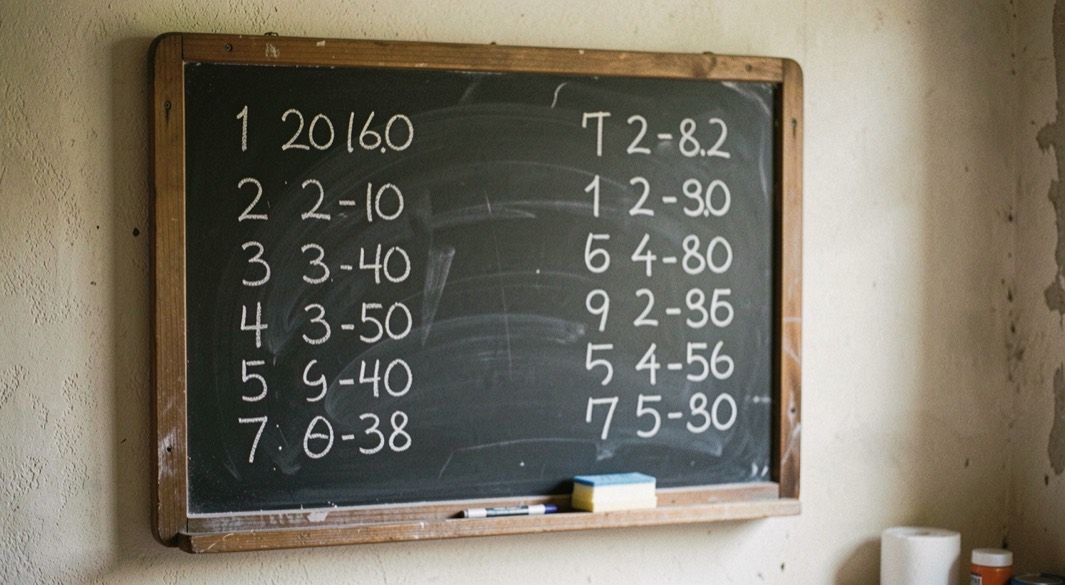 1 20 16.0
2 2-10
3 3-40
4 3-50
5 9-40
7. θ-38
T 2-8.2
1 2-9.0
6 4-80
9 2-96
5 4-56
7 5-90